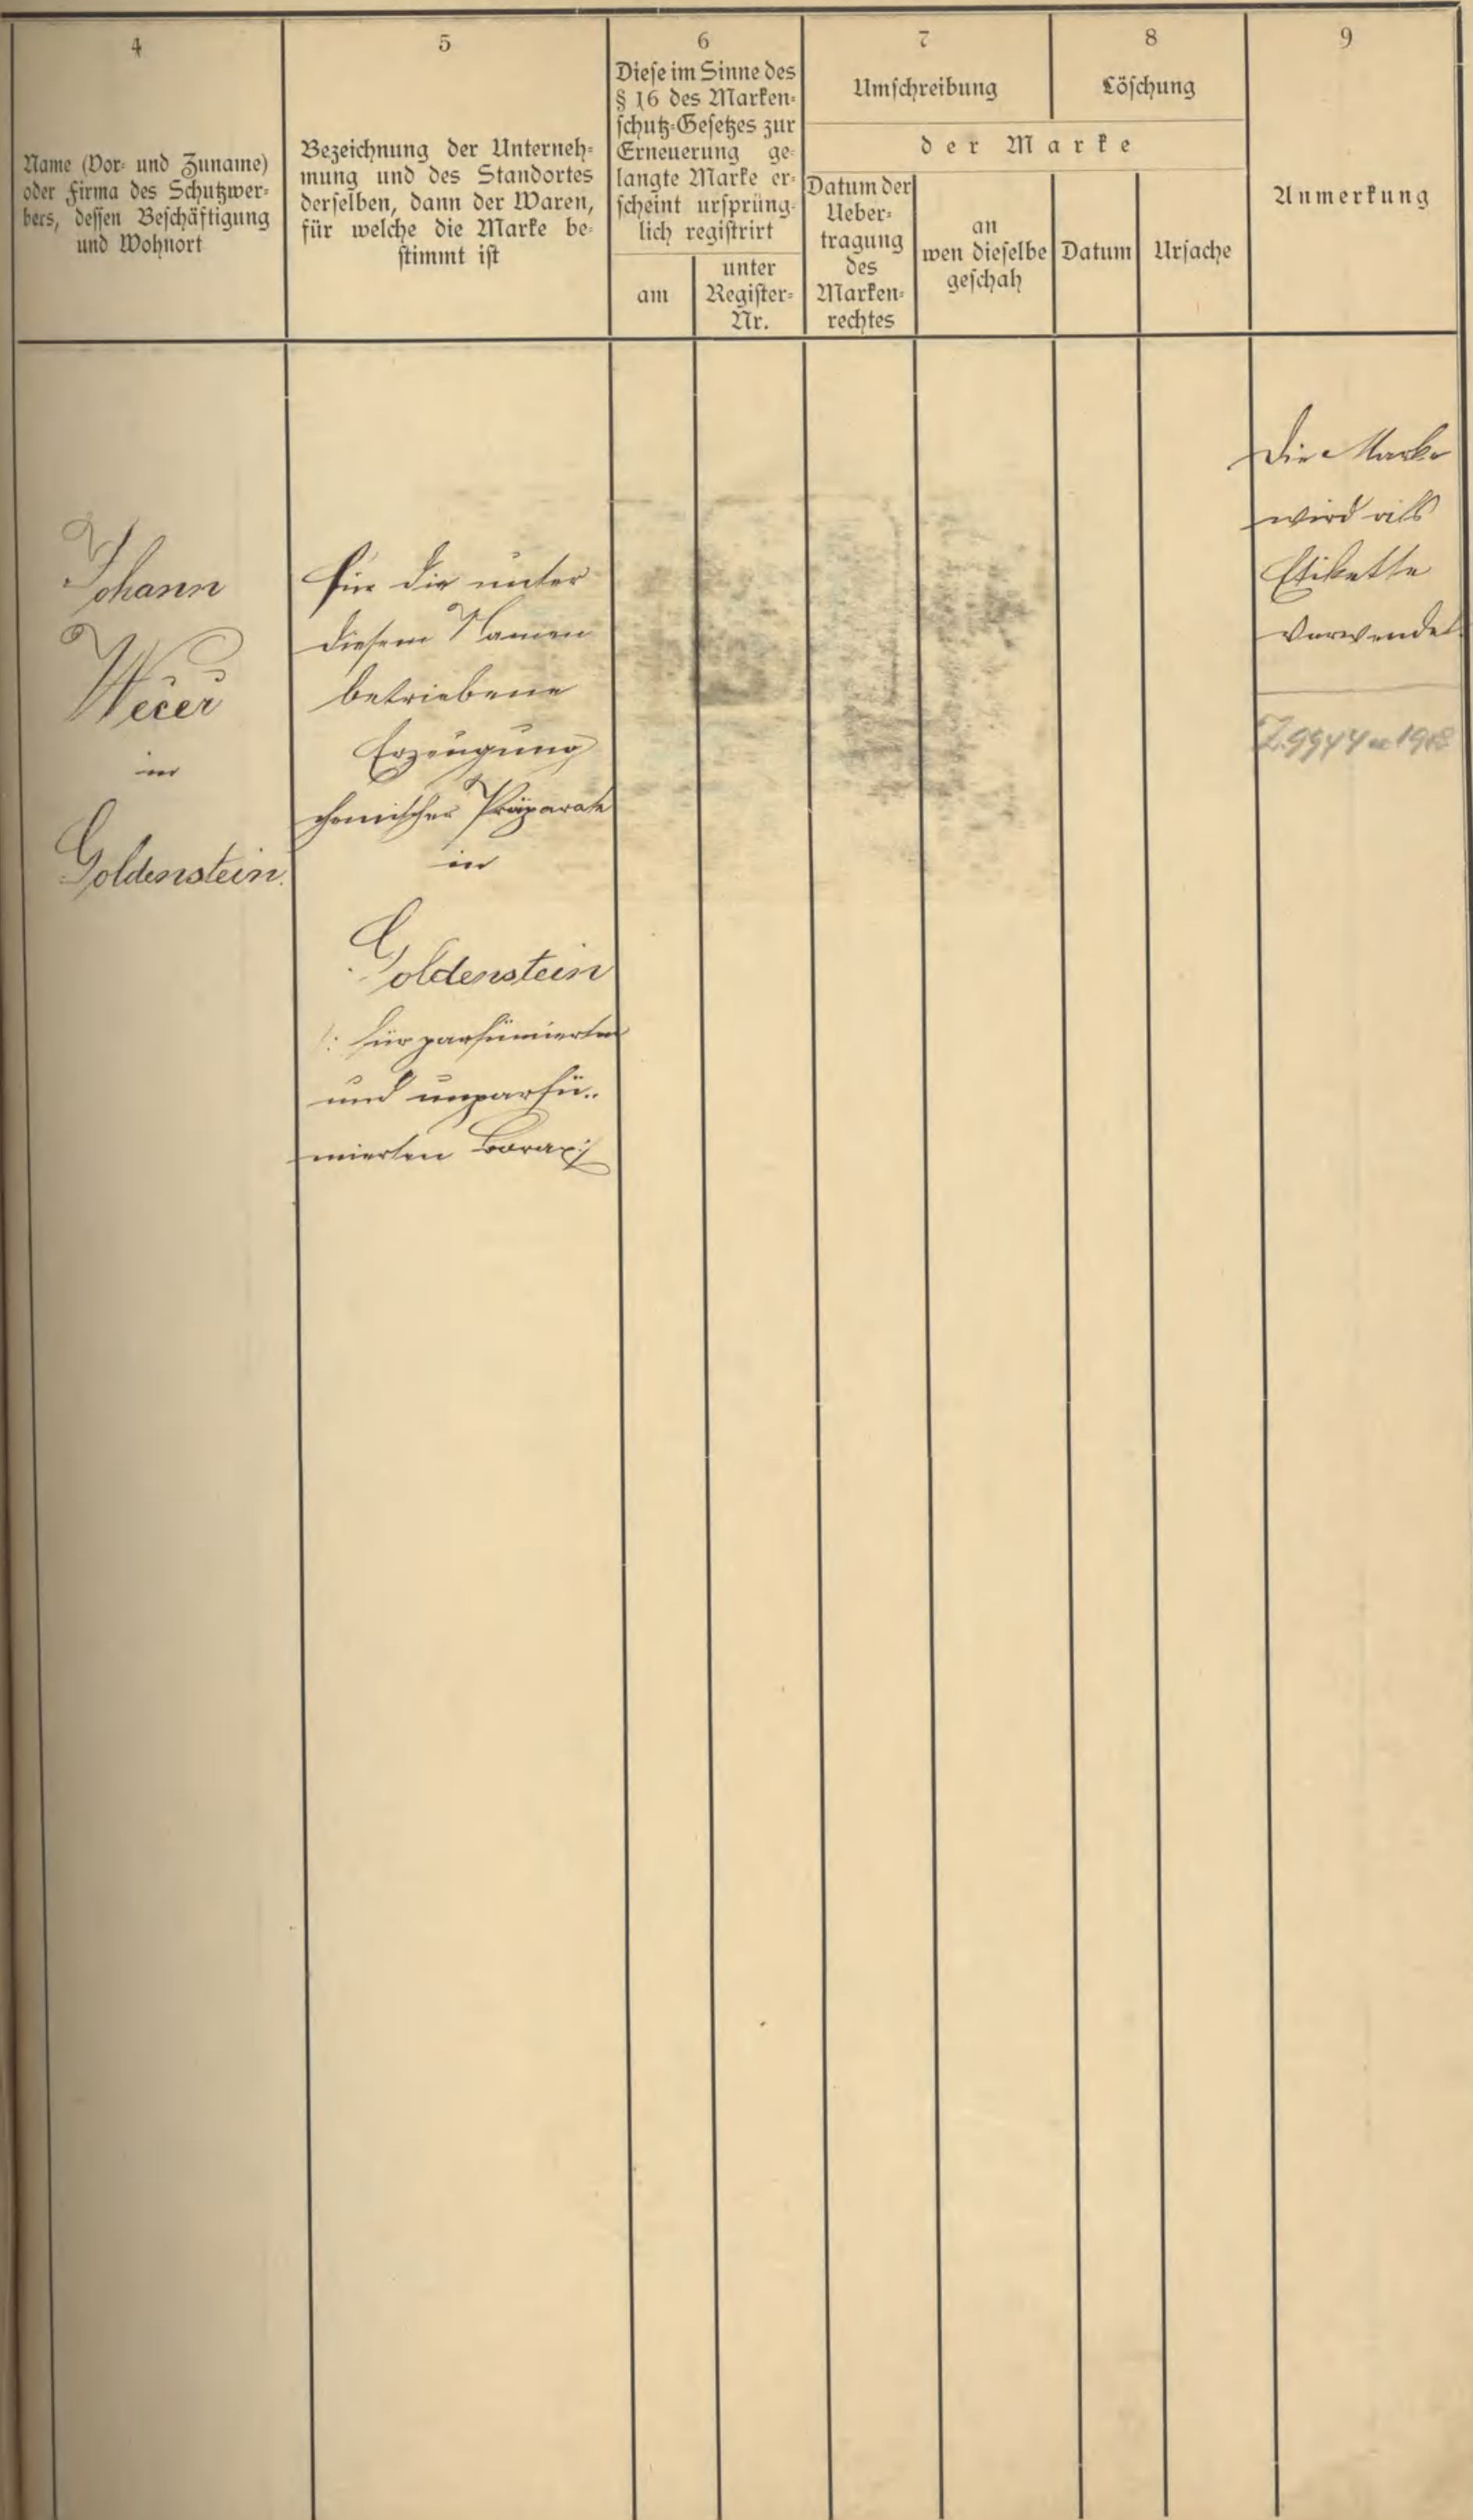 4
Name (Vor- und Zuname)
oder Firma des Schutzwer-
bers, dessen Beschäftigung
und Wohnort
5
Bezeichnung der Unterneh-
mung und des Standortes
derselben, dann der Waren,
für welche die Marke be-
stimmt ist
6
Diese im Sinne des
§ 16 des Marken-
schutz-Gesetzes zur
Erneuerung ge-
langte Marke er-
scheint ursprüng-
lich registrirt
am
unter
Register-
Nr.
7
Umschreibung
8
Löschung
der Marke
Datum der
Ueber-
tragung
des
Marken-
rechtes
an
wen dieselbe
geschah
Datum
Ursache
9
Anmerkung
Johann
Wecer
in
Goldenstein.
für die unter
diesem Namen
betriebene
Erzeugung
chemischer Präparate
in
Goldenstein
/: für parfümierten
und unparfü-
mierten Borax :/
Die Marke
wird als
Etikette
verwendet.
Z. 9944 ex